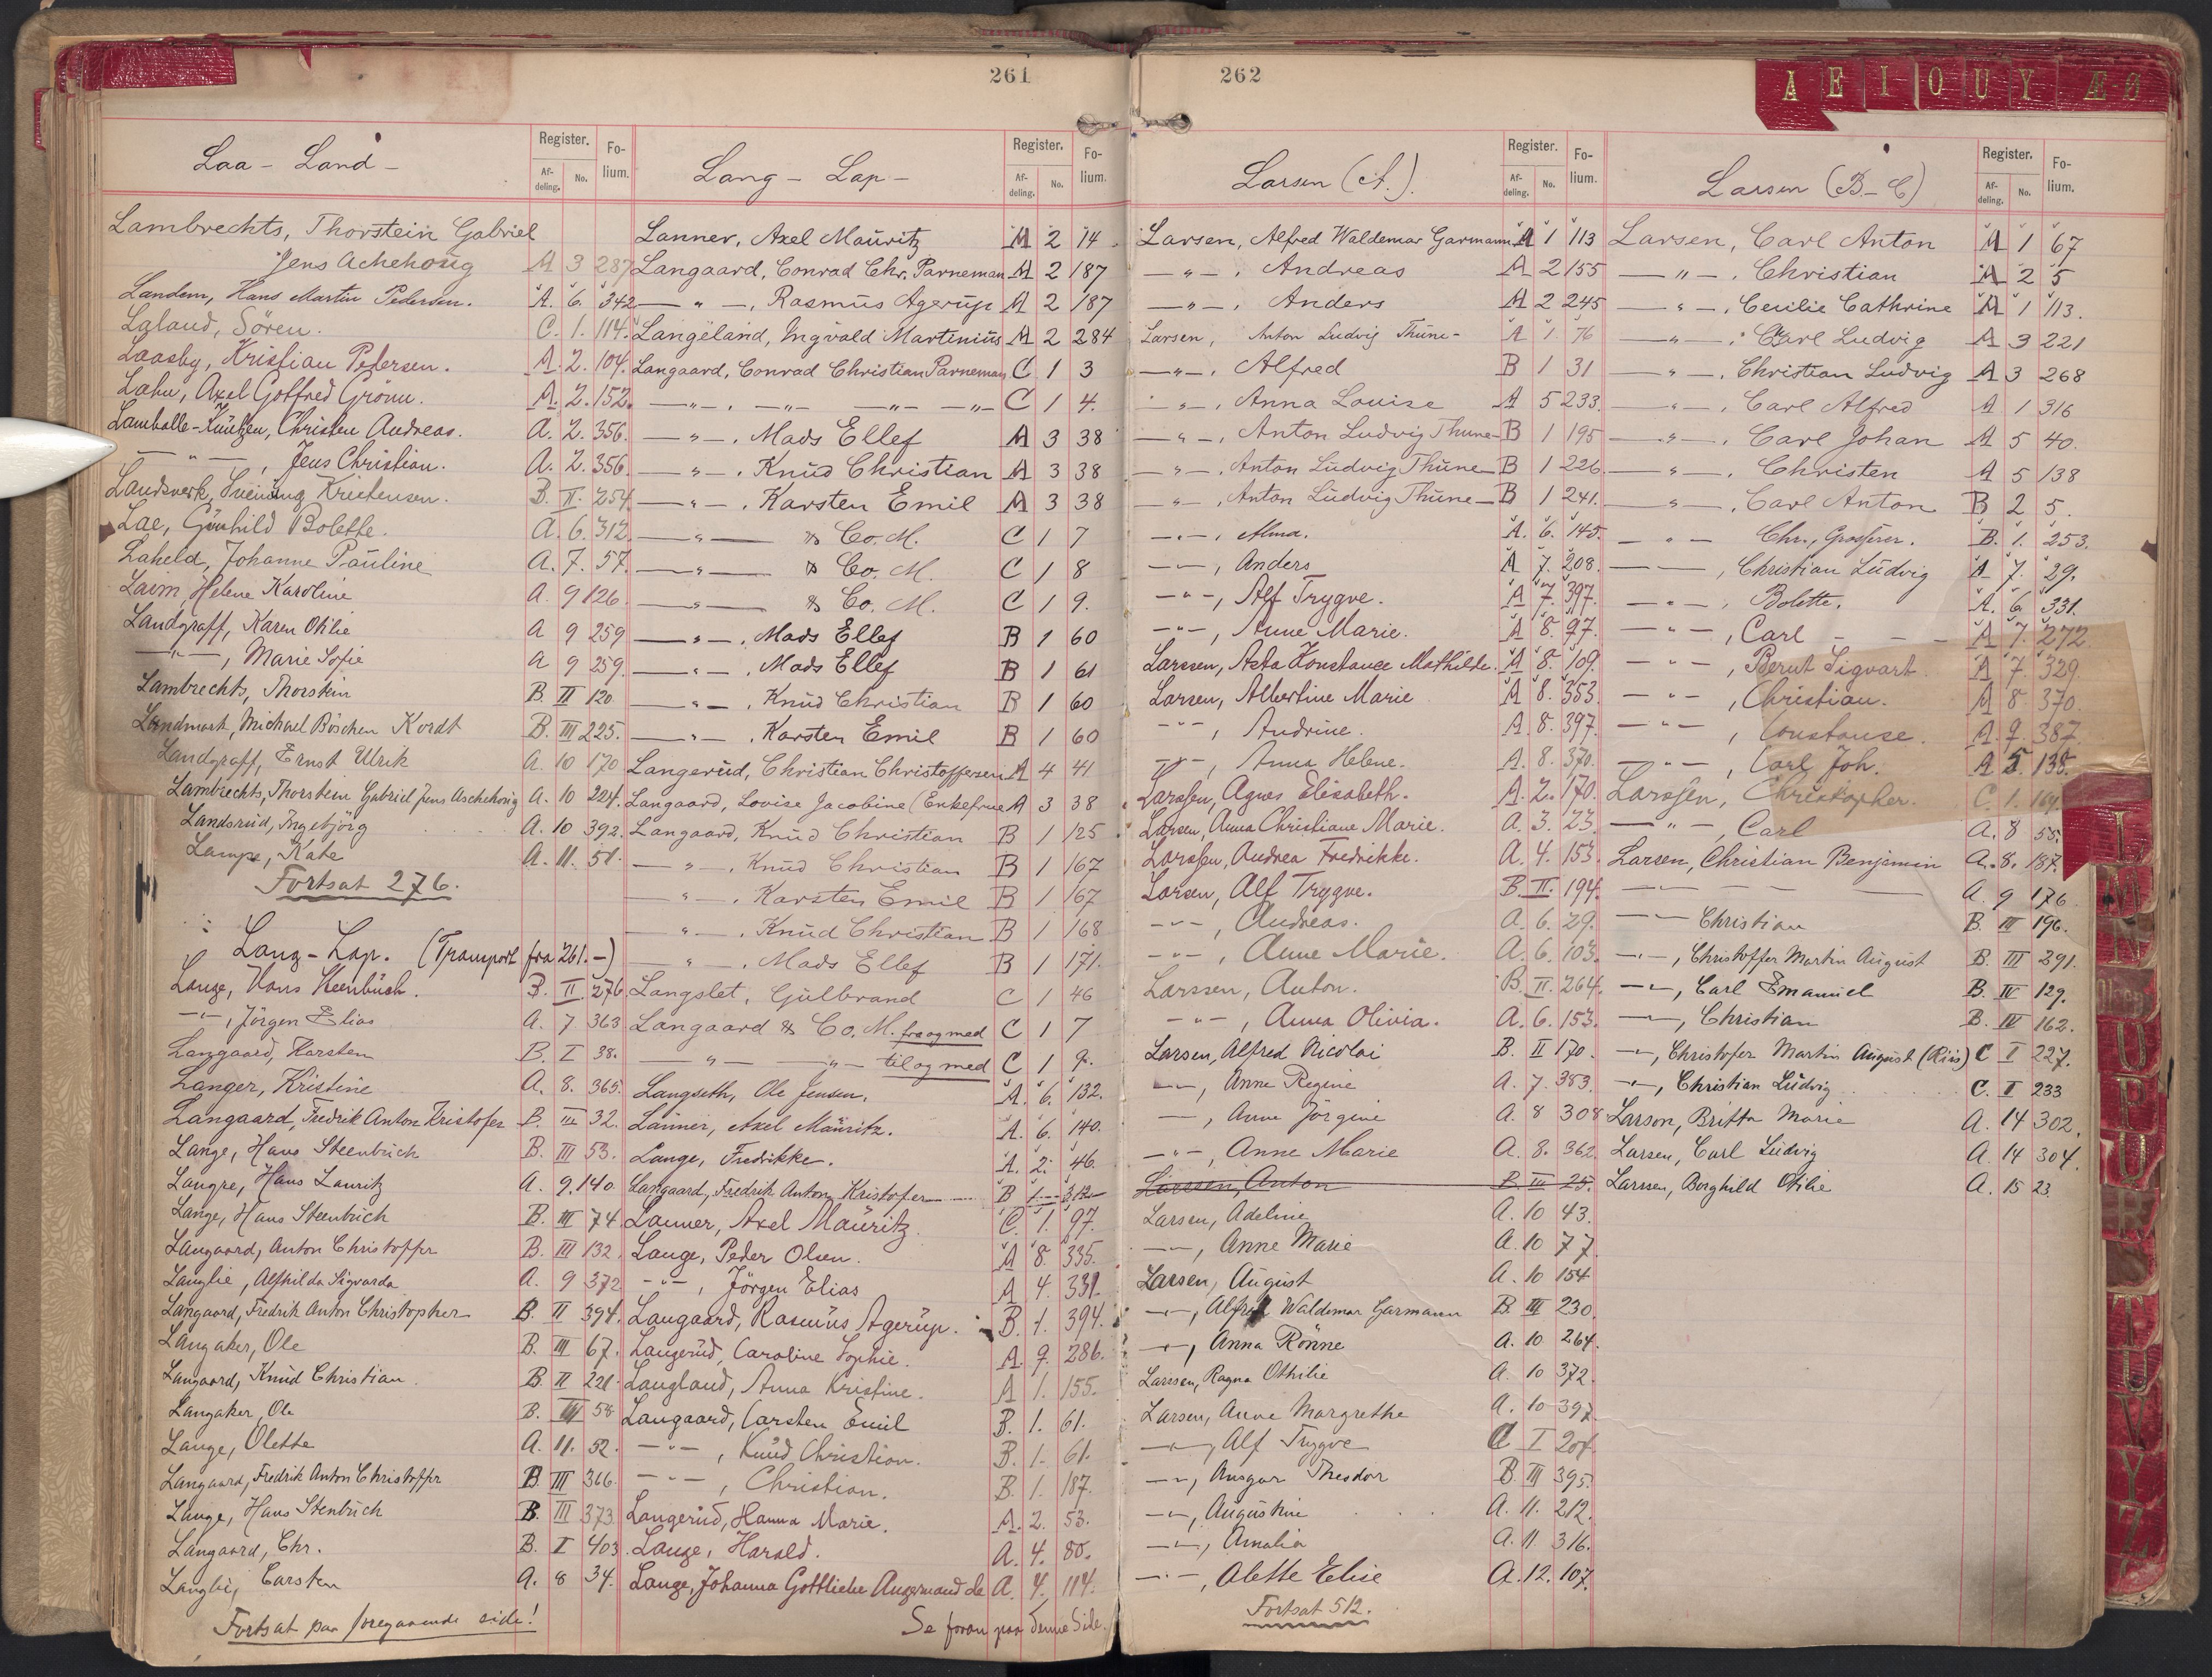 261
Laa - Land -
Register. Fo-
Af- No. lium.
deling.
Lambrechts, Thorstein Gabriel
Jens Achehoug A 3 287
Landem, Hans Martin Pedersen. A. 6. 342
Laland, Sören. C. 1. 114.
Laasby, Kristian Pedersen. A. 2. 104.
Lahn, Axel Gotfred Grönn. A. 2. 152.
Lamballe-Knutzen, Christen Andreas. A. 2. 356.
— " — , Jens Christian. A. 2. 356.
Landsverk, Sveinung Kristensen. B. II. 254.
Lae, Gunhild Bolette. A. 6. 312.
Laheld, Johanne Pauline A. 7. 57.
Larm, Helene Karoline A. 9 126.
Landgraff, Karen Otilie A 9 259
— " — , Marie Sofie A 9 259.
Lambrechts, Thorstein B. II 120
Landmark, Michael Böschen Kordt B. III 225.
Landgraff, Ernst Ulrik A. 10 170
Lambrechts, Thorstein Gabriel Jens Aschehoug A. 10 224.
Landsrud, Ingebjörg A. 10 392.
Lampe, Kate A. 11. 51.
Fortsat 276.
Lang - Lap. (Transport fra 261.-)
Lange, Hans Steenbuch. B. II. 276
— " — , Jörgen Elias A. 7 363
Langaard, Karsten B. I 38.
Langer, Kristine A. 8. 365.
Langaard, Fredrik Anton Kristofer B. III 32.
Lange, Hans Steenbuch B. III 53.
Langre, Hans Lauritz A. 9. 140.
Lange, Hans Steenbuch B. III 74
Langaard, Anton Christoffer B. III 132.
Langlie, Alfhilda Sigvarda A. 9 372
Langaard, Fredrik Anton Christopher B. II 394.
Langaker, Ole B. III 67.
Langaard, Knud Christian B. II 221
Langaker, Ole B. III 58
Lange, Olette A. 11. 52.
Langaard, Fredrik Anton Christoffer B. III 366.
Lange, Hans Stenbuch B. III 373
Langaard, Chr. B. I 403
Langli, Carsten A. 8 34.
Fortsat paa foregaaende side!
Lang - Lap -
Register. Fo-
Af- No. lium.
deling.
Lanner, Axel Mauritz A 2 14
Langaard, Conrad Chr. Parneman A 2 187
— " — , Rasmus Agerup A 2 187
Langeland, Ingvald Martinius A 2 284
Langaard, Conrad Christian Parneman C 1 3
— " — . — " — — " — — " — C 1 4.
— " — . Mads Ellef A 3 38
— " — . Knud Christian A 3 38
— " — . Karsten Emil A 3 38
— " — & Co. M. C 1 7
— " — & Co. M. C 1 8
— " — & Co. M. C 1 9.
— " — . Mads Ellef B 1 60
— " — . Mads Ellef B 1 61
— " — . Knud Christian B 1 60
— " — . Karsten Emil B 1 60
Langerud, Christian Christoffersen A 4 41
Langaard, Lovise Jacobine (Enkefrue A 3 38
Langaard, Knud Christian B 1 125
— " — . Knud Christian B 1 167
— " — . Karsten Emil B 1 167
— " — . Knud Christian B 1 168
— " — . Mads Ellef B 1 171.
Langslet, Gulbrand C 1 46
Langaard & Co. M. fra og med C 1 7
— " — — " — til og med C 1 9.
Langseth, Ole Jensen. A. 6. 132.
Lanner, Axel Mauritz. A. 6. 140.
Lange, Fredrikke. A. 2. 46.
Langaard, Fredrik Anton Kristofer B 1. 312
Lanner, Axel Mauritz. C. 1. 97.
Lange, Peder Olsen. A 8. 335.
— " — , Jörgen Elias A 4. 331.
Langaard, Rasmus Agerup. B. 1. 394.
Langerud, Caroline Sophie. A. 9. 286.
Langland, Anna Kristine. A 1. 155.
Langaard, Carsten Emil B. 1. 61.
— " — , Knud Christian. B. 1. 61.
— " — , Christian. B. 1. 187.
Langerud, Hanna Marie. A. 2. 53.
Lange, Harald. A. 4. 80.
Lange, Johanna Gottliebe Angermand de A. 4. 114.
Se foran paa denne Side.
262
Larsen (A.).
Register. Fo-
Af- No. lium.
deling.
Larsen, Alfred Waldemar Garmann A 1 113
— " — . Andreas A 2 155
— " — . Anders A 2 245
Larsen, Anton Ludvig Thune- A 1. 76
— " — . Alfred B 1 31
— " — , Anna Louise A 5 233.
— " — , Anton Ludvig Thune- B 1 195
— " — . Anton Ludvig Thune- B 1 226
— " — , Anton Ludvig Thune- B 1 241.
— " — , Alma. A. 6. 145.
— " — , Anders A 7. 208.
— " — , Alf Trygve. A 7. 397.
— " — , Anne Marie. A 8. 97.
Larssen, Asta Konstance Mathilde. A 8. 109.
Larsen, Albertine Marie A 8. 353.
— " — , Andrine. A 8. 397.
— " — , Anna Helene. A. 8. 370.
Larssen, Agnes Elisabeth. A. 2. 170.
Larsen, Anna Christiane Marie. A. 3. 23.
Larssen, Andrea Fredrikke. A. 4. 153.
Larsen, Alf Trygve. B. II. 194.
— " — , Andreas. A. 6. 29.
— " — , Anne Marie. A. 6. 103.
Larssen, Anton. B. II. 264.
— " — , Anna Olivia. A. 6. 153.
Larsen, Alfred Nicolai B. II 170.
— " — , Anne Regine A. 7. 383.
— " — , Anne Jörgine A. 8 308
— " — , Anne Marie A. 8. 362.
Larssen, Anton B III 25.
Larsen, Adeline A. 10 43.
— " — , Anne Marie A. 10 77.
Larsen, August A. 10 154
— " — , Alfred Waldemar Garmann B. III 230
— " — , Anna Rönne A. 10 264.
Larssen, Ragna Othilie A. 10 372.
Larsen, Anne Margrethe A. 10 397
— " — , Alf Trygve C I 204.
— " — , Ansgar Theodor B. III 395.
— " — , Augustine A. 11. 212.
— " — , Amalia A. 11 316.
— " — , Alette Elise A. 12. 107.
Fortsat 512.
A E I O U Y Æ-Ø
Larsen (B-C)
Register. Fo-
Af- No. lium.
deling.
Larsen, Carl Anton A 1 67
— " — . Christian A 2 5
— " — . Cecilie Cathrine A 1 113.
— " — . Carl Ludvig A 3 221
— " — . Christian Ludvig A 3 268
— " — . Carl Alfred A 1 316
— " — . Carl Johan A 5 40.
— " — . Christen A 5 138
— " — . Carl Anton B 2 5.
— " — Chr., Grosserer. B. 1. 253.
— " — , Christian Ludvig A 7. 29.
— " — , Bolette. A. 6. 331.
— " — , Carl A 7. 272.
— " — , Bernt Sigvart. A 7. 329.
— " — , Christian. A 8 370.
— " — , Constanse. A. 9. 387.
— " — , Carl Joh. A 5. 138.
Larssen, Christopher. C. 1. 164.
— " — , Carl A. 8 55.
Larsen, Christian Benjamin A. 8. 187.
— " — — — A. 9 176
— " — Christian B. III 196.
— " — , Christoffer Martin August B. III 291.
— " — , Carl Emanuel B. IV 129.
— " — , Christian B. IV 162.
— " — , Christofer Martin August (Riis) C I 227.
— " — , Christian Ludvig C. I 233
Larson, Britta Marie A. 14 302.
Larsen, Carl Ludvig A. 14 304.
Larssen, Borghild Otilie A. 15 23.
L
M
N
Olsen
O
P
U
R
T
TUV
YZ